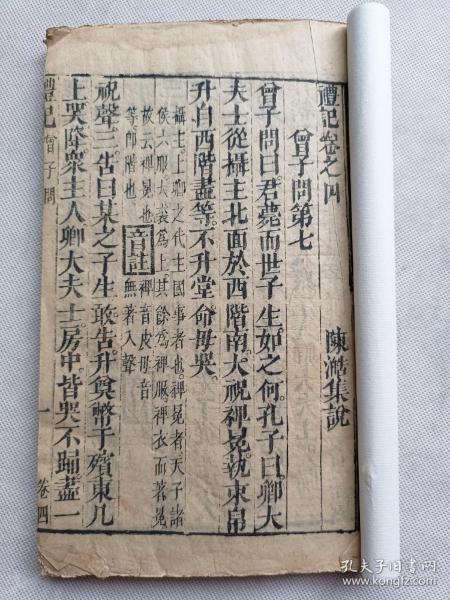 禮記卷之四
陳澔集說
曾子問第七
曾子問曰君薨而世子生如之何孔子曰卿大
夫士從攝主北面於西階南大祝裨冕執束帛
升自西階盡等不升堂命毋哭
攝主上卿之代主國事者也裨冕者天子諸
侯六服大裘爲上其餘爲裨服裨衣而著冕
故云裨冕也
等卽階也
音註
裨音皮毋音
無著入聲
祝聲三告曰某之子生敢告升奠幣于殯東几
上哭降衆主人卿大夫士房中皆哭不踊盡一
禮記
曾子問
一
卷四
孔夫子旧书网
www.kongfz.com